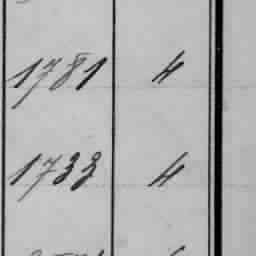 1781 4
1733 4